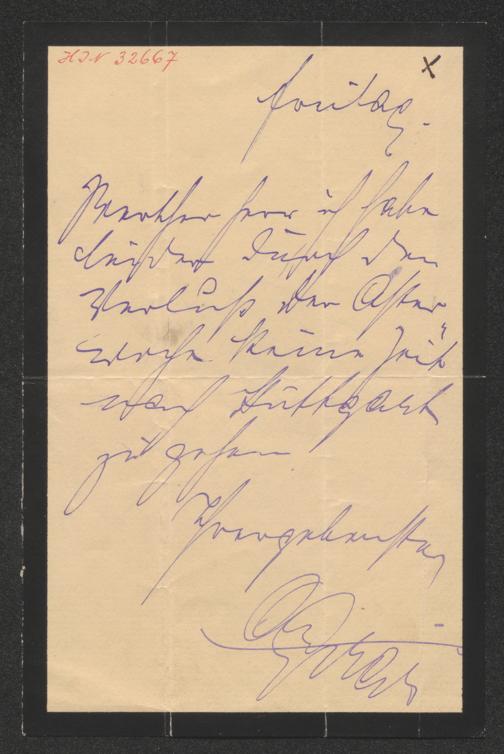 HIN 32667
x
Freitag.
Werther Herr ich habe
leider durch den
Verlust der Oster
woche keine Zeit
nach Stuttgart
zu gehen
Ihr ergebenster